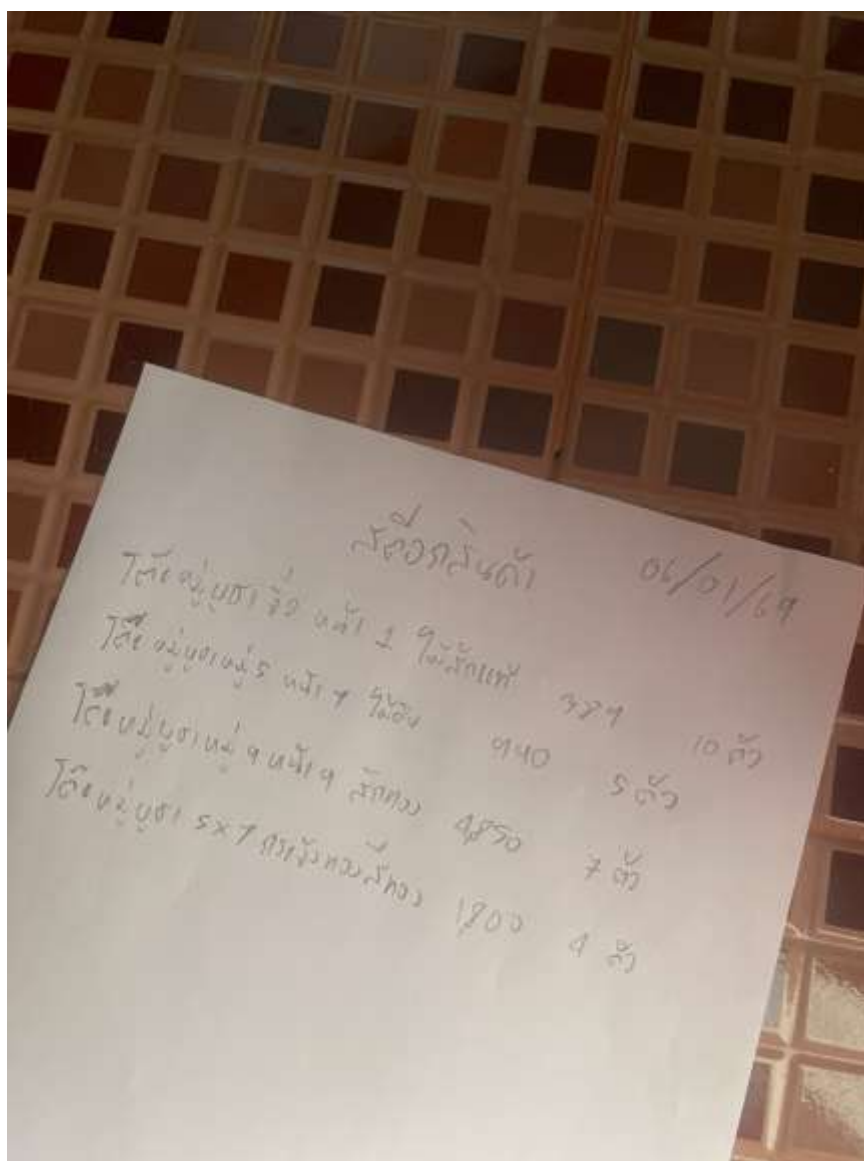 สต๊อกสินค้า 06/01/69
โต๊ะหมู่บูชา จิ๋ว หน้า 2 ไม้สักแท้ 389 10 ตัว
โต๊ะหมู่บูชาหมู่ 5 หน้า 7 940 5 ตัว
โต๊ะหมู่บูชาหมู่ 9 หน้า 9 สีทอง 4,850 7 ตัว
โต๊ะหมู่บูชา 5x7 สีทอง 1,800 4 ตัว